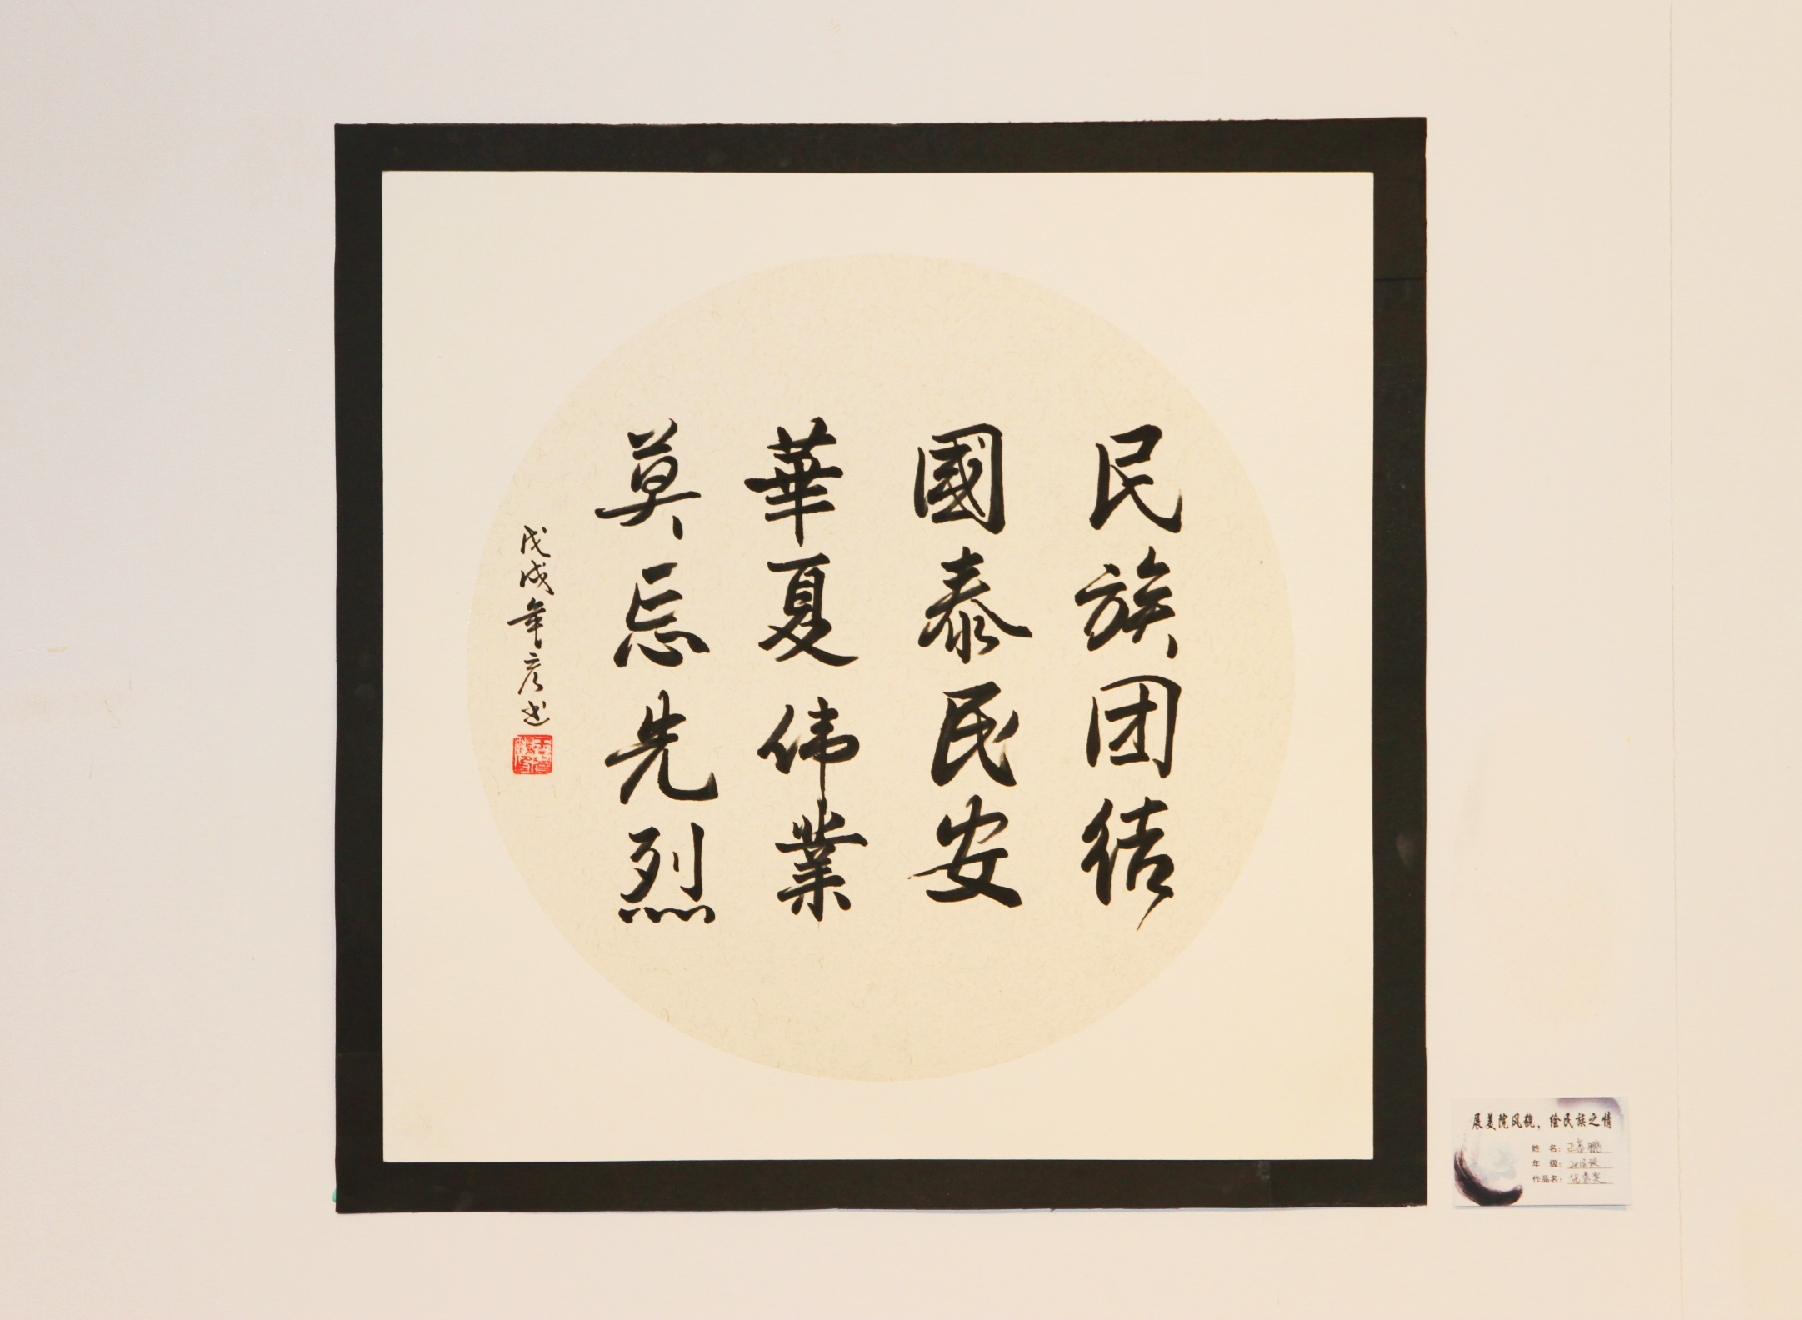 民族团结
國泰民安
華夏伟業
莫忘先烈
戊戌年彦书
展美院风貌，绘民族之情
姓 名：
年 级：
作品名：